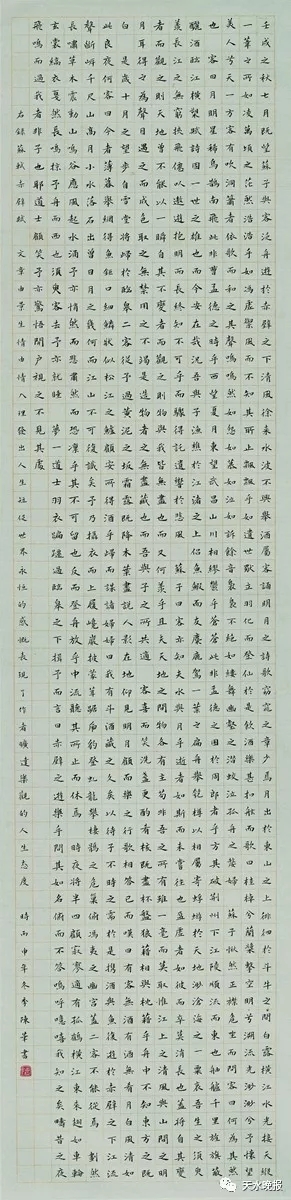 壬戌之秋七月既望蘇子與客泛舟遊於赤壁之下清風徐來水波不興舉酒屬客誦明月之詩歌窈窕之章少焉月出於東山之上徘徊於斗牛之間白露橫江水光接天縱
一葦之所如凌萬頃之茫然浩浩乎如馮虛御風而不知其所止飄飄乎如遺世獨立羽化而登仙於是飲酒樂甚扣舷而歌之歌曰桂棹兮蘭槳擊空明兮溯流光渺渺兮予懷望
美人兮天一方客有吹洞簫者依歌而和之其聲嗚嗚然如怨如慕如泣如訴餘音裊裊不絕如縷舞幽壑之潛蛟泣孤舟之嫠婦 蘇子愀然正襟危坐而問客曰何為其然也
客曰月明星稀烏鵲南飛此非曹孟德之詩乎西望夏口東望武昌山川相繆鬱乎蒼蒼此非孟德之困於周郎者乎方其破荊州下江陵順流而東也舳艫千里旌旗蔽空
釃酒臨江橫槊賦詩固一世之雄也而今安在哉況吾與子漁樵於江渚之上侶魚蝦而友麋鹿駕一葉之扁舟舉匏樽以相屬寄蜉蝣於天地渺滄海之一粟哀吾生之須臾
羨長江之無窮挾飛仙以遨遊抱明月而長終知不可乎驟得託遺響於悲風 蘇子曰客亦知夫水與月乎逝者如斯而未嘗往也盈虛者如彼而卒莫消長也蓋將自其變
者而觀之則天地曾不能以一瞬自其不變者而觀之則物與我皆無盡也而又何羨乎且夫天地之間物各有主苟非吾之所有雖一毫而莫取惟江上之清風與山間之明
月耳得之而為聲目遇之而成色取之無禁用之不竭是造物者之無盡藏也而吾與子之所共適 客喜而笑洗盞更酌肴核既盡杯盤狼藉相與枕藉乎舟中不知東方之既
白 是歲十月之望步自雪堂將歸於臨皋二客從予過黃泥之坂霜露既降木葉盡脫人影在地仰見明月顧而樂之行歌相答已而嘆曰有客無酒有酒無肴月白風清如
此良夜何客曰今者薄暮舉網得魚巨口細鱗狀似松江之鱸顧安所得酒乎歸而謀諸婦婦曰我有斗酒藏之久矣以待子不時之需於是攜酒與魚復遊於赤壁之下江流有
聲斷岸千尺山高月小水落石出曾日月之幾何而江山不可復識矣予乃攝衣而上履巉巖披蒙茸踞虎豹登虯龍攀棲鶻之危巢俯馮夷之幽宮蓋二客不能從焉劃然
長嘯草木震動山鳴谷應風起水涌予亦悄然而悲肅然而恐凜乎其不可留也反而登舟放乎中流聽其所止而休焉時夜將半四顧寂寥適有孤鶴橫江東來翅如車輪
玄裳縞衣戛然長鳴掠予舟而西也須臾客去予亦就睡夢一道士羽衣蹁躚過臨皋之下揖予而言曰赤壁之遊樂乎問其姓名俯而不答嗚呼噫嘻我知之矣疇昔之夜
飛鳴而過我者非子也耶道士顧笑予亦驚悟開戶視之不見其處
右錄蘇軾赤壁賦 文章由景生情由情入理發出人生短促世界永恆的感慨表現了作者曠達樂觀的人生態度 時丙申年冬季陳華書
天水晚报